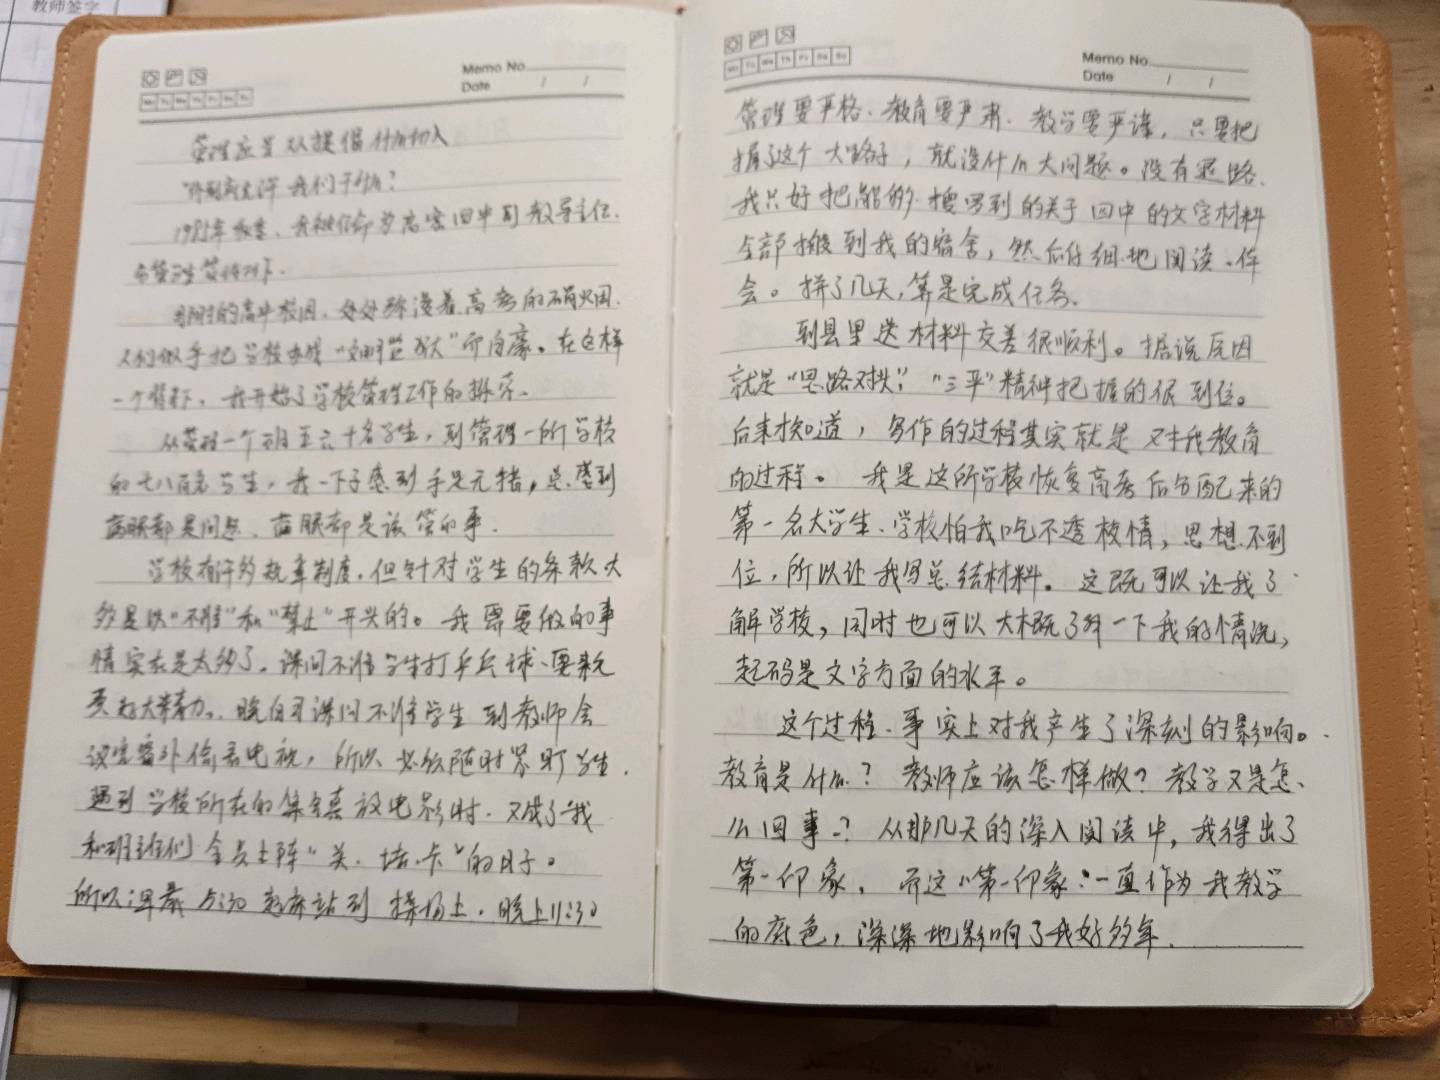 教师签字
Memo No.
Date / /
Mo Tu We Th Fr Sa Su
管理应当从提倡什么切入
制度允许我们干什么？
1985年秋季，我被任命为高密四中副教导主任，
分管学生管理
当时的高中校园，处处弥漫着高考的硝烟，
人们似乎把学校办成“文明监狱”而自豪。在这样
一个背景下，我开始了学校管理工作的探索。
从管理一个班五六十名学生，到管理一所学校
的七八百名学生，我一下子感到手足无措，总感到
满眼都是问题，满眼都是该管的事。
学校有许多规章制度，但针对学生的条款大
多是以“不准”和“禁止”开头的。我需要做的事
情实在是太多了，课间不准学生打乒乓球，要来
大精力。晚自习课间不准学生到教师会
议室窗外偷看电视，所以必须随时紧盯学生，
遇到学校所在的集镇放电影时，又成了我
和班主任们全员上阵“关、堵、卡”的日子。
所以早晨5:30起床站到操场上，晚上11:30
Memo No.
Date / /
Mo Tu We Th Fr Sa Su
管理要严格、教育要严肃、教学要严谨，只要把
握了这个大路子，就没什么大问题。没有思路，
我只好把能够搜罗到的关于四中的文字材料
全部搬到我的宿舍，然后仔细地阅读、体
会。拼了几天，算是完成任务。
到县里送材料交差很顺利。据说原因
就是“思路对头”，“三严”精神把握的很到位。
后来才知道，写作的过程其实就是对我教育
的过程。我是这所学校恢复高考后分配来的
第一名大学生，学校怕我吃不透校情，思想不到
位，所以让我写总结材料。这既可以让我了
解学校，同时也可以大概了解一下我的情况，
起码是文字方面的水平。
这个过程，事实上对我产生了深刻的影响。
教育是什么？教师应该怎样做？教学又是怎
么回事？从那几天的深入阅读中，我得出了
第一印象，而这“第一印象”一直作为我教学
的底色，深深地影响了我好多年。